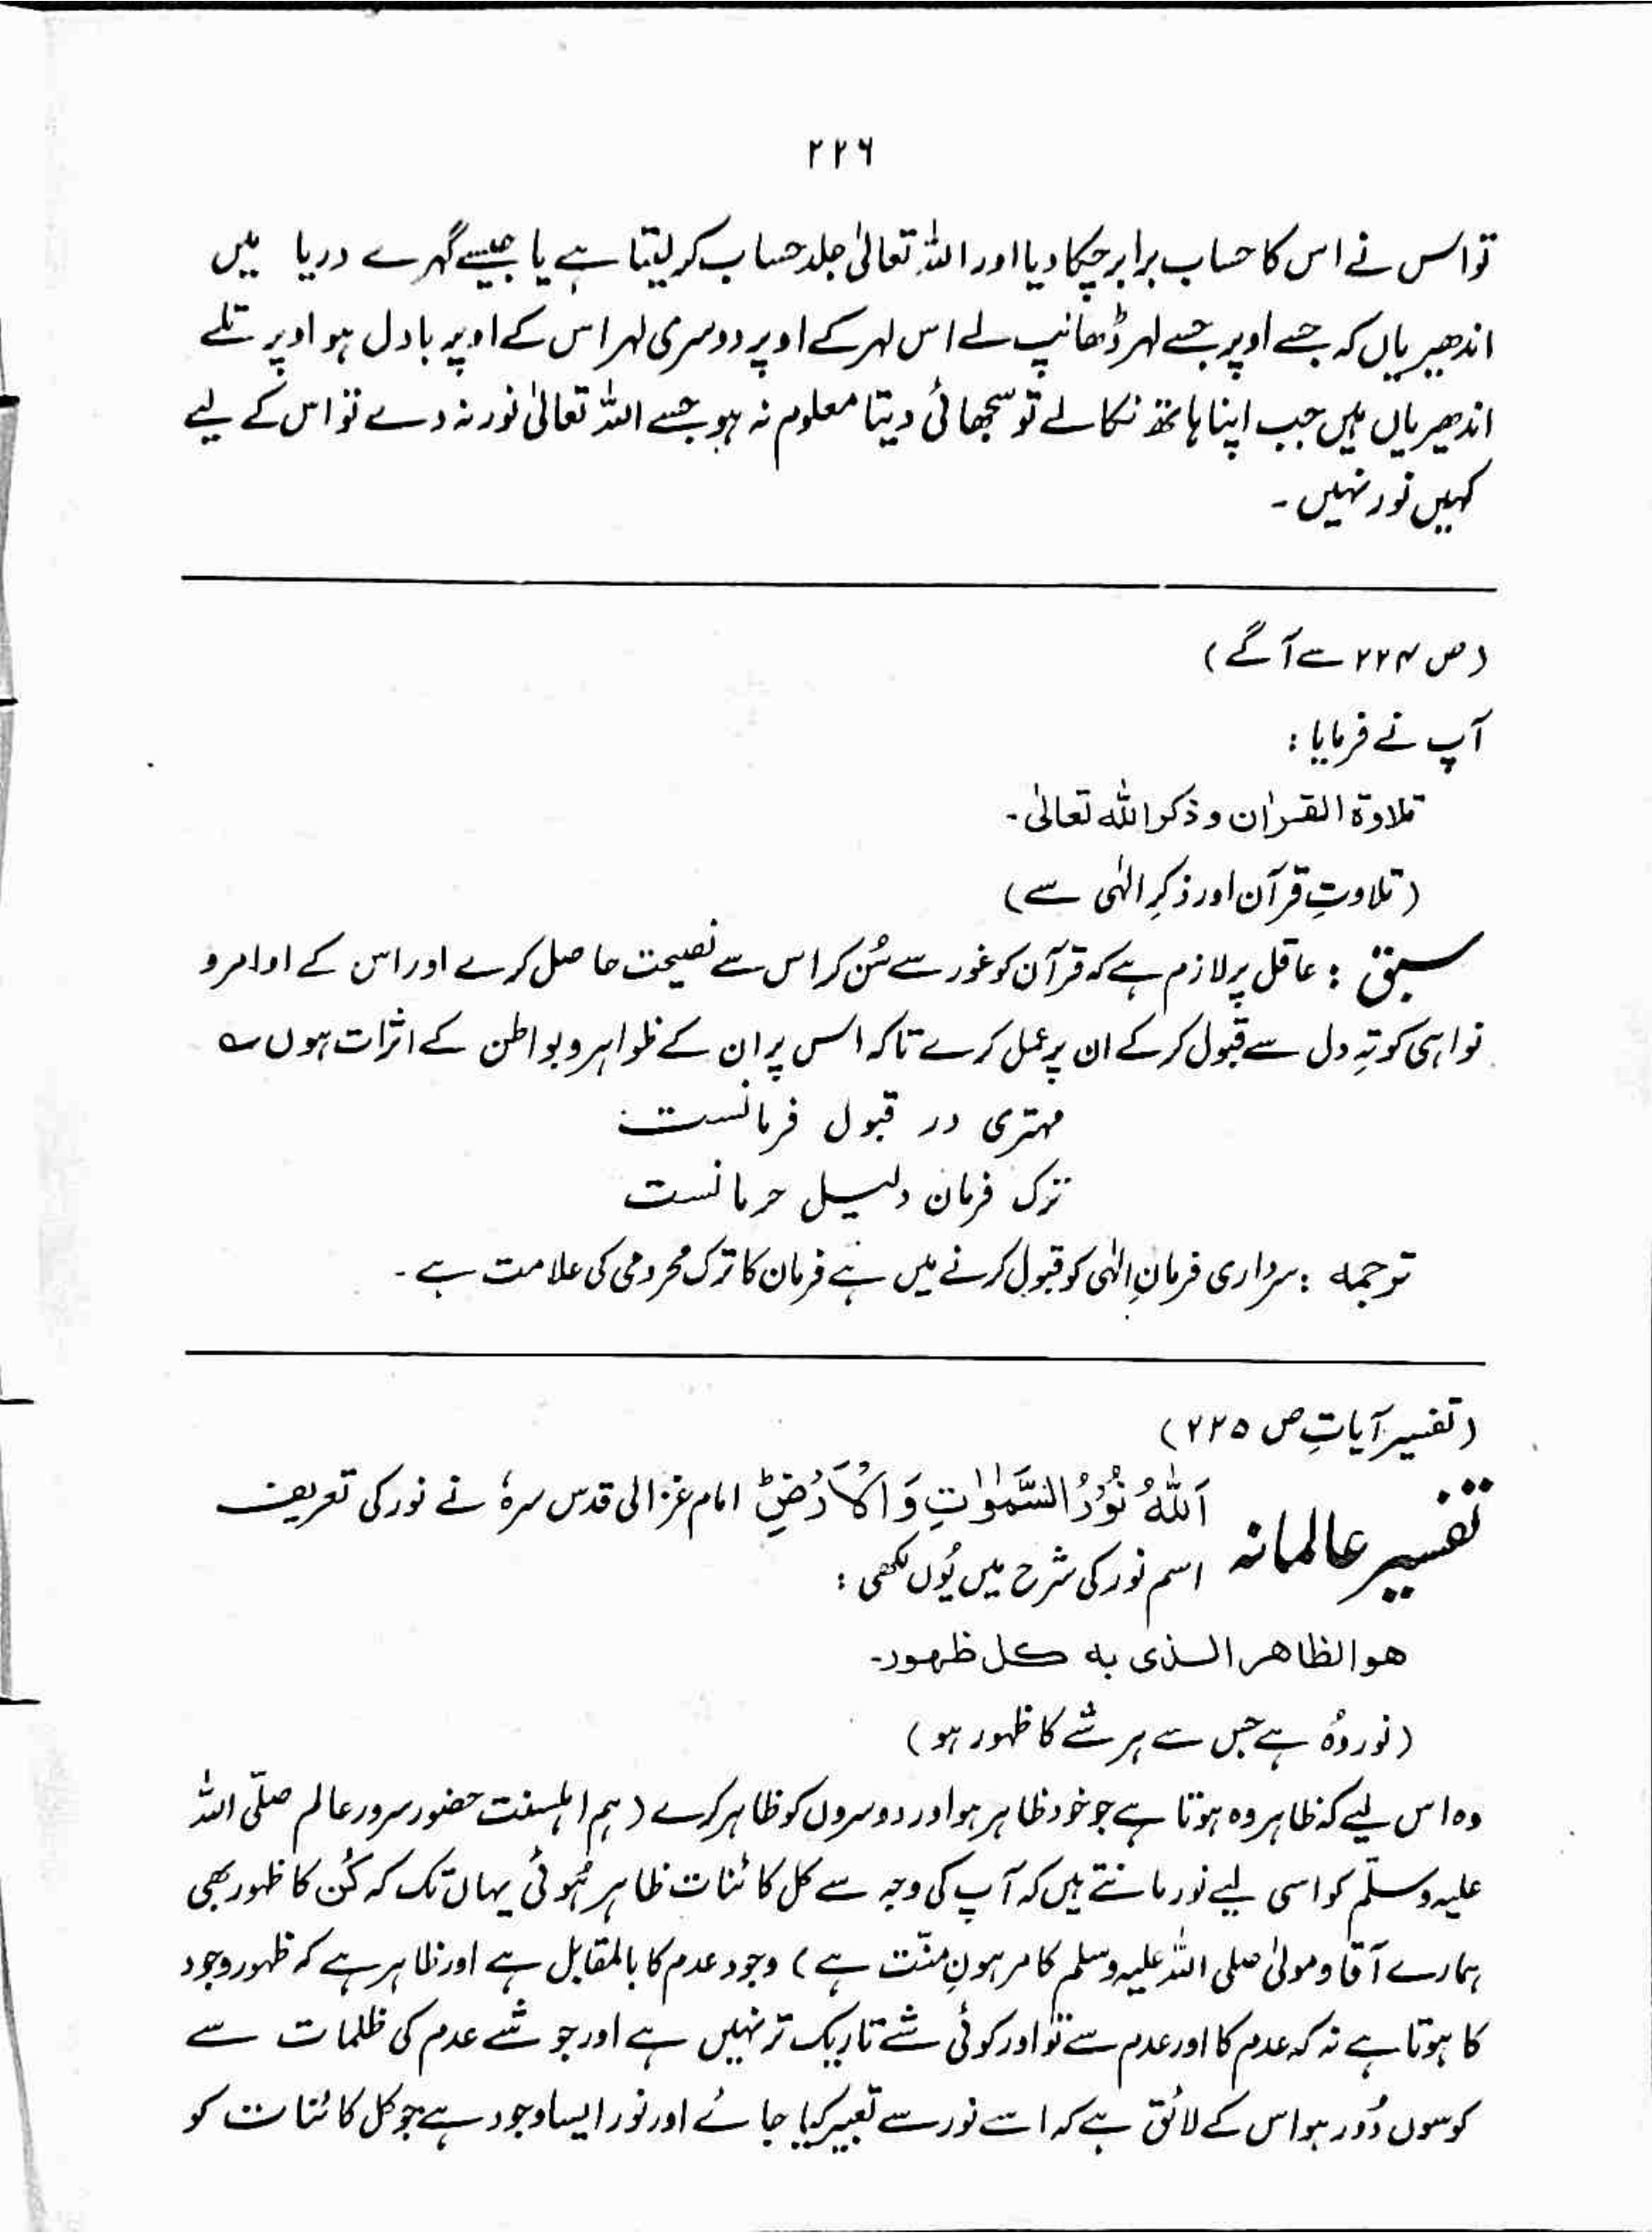 ۲۲۶
تو اس نے اس کا حساب برابر چکا دیا اور اللہ تعالیٰ جلد حساب کر لیتا ہے یا جیسے گہرے دریا میں
اندھیریاں کہ جسے اوپر جسے لہر ڈھانپ لے اس لہر کے اوپر دوسری لہر اس کے اوپر بادل ہو اوپر تلے
اندھیریاں ہیں جب اپنا ہاتھ نکالے تو سجھائی دیتا معلوم نہ ہو جسے اللہ تعالیٰ نور نہ دے تو اس کے لیے
کہیں نور نہیں ۔
(ص ۲۲۴ سے آگے)
آپ نے فرمایا :
تلاوۃ القراٰن و ذکر اللہ تعالیٰ۔
(تلاوتِ قرآن اور ذکرِ الٰہی سے)
سبق : عاقل پر لازم ہے کہ قرآن کو غور سے سُن کر اس سے نصیحت حاصل کرے اور اس کے اوامر و
نواہی کو تہِ دل سے قبول کر کے ان پر عمل کرے تاکہ اس پر ان کے ظواہر و بواطن کے اثرات ہوں ؎
مہتری در قبول فرمانست
ترک فرمان دلیل حرمانست
ترجمہ : سرداری فرمانِ الٰہی کو قبول کرنے میں ہے فرمان کا ترک محرومی کی علامت ہے ۔
(تفسیر آیاتِ ص ۲۲۵)
تفسیر عالمانہ اَللّٰہُ نُوْرُ السَّمٰوٰتِ وَ الْاَرْضِ ؕ امام غزالی قدس سرہٗ نے نور کی تعریف
اسم نور کی شرح میں یُوں لکھی :
ھو الظاھر الذی بہ کل ظہور۔
(نور وُہ ہے جس سے ہر شے کا ظہور ہو)
وہ اس لیے کہ ظاہر وہ ہوتا ہے جو خود ظاہر ہو اور دوسروں کو ظاہر کرے (ہم اہلسنت حضور سرور عالم صلّی اللہ
علیہ وسلّم کو اسی لیے نور مانتے ہیں کہ آپ کی وجہ سے کل کائنات ظاہر ہُوئی یہاں تک کہ کُن کا ظہور بھی
ہمارے آقا و مولیٰ صلی اللہ علیہ وسلم کا مرہونِ منّت ہے) وجود عدم کا بالمقابل ہے اور ظاہر ہے کہ ظہور وجود
کا ہوتا ہے نہ کہ عدم کا اور عدم سے تو اور کوئی شے تاریک تر نہیں ہے اور جو شے عدم کی ظلمات سے
کوسوں دُور ہو اس کے لائق ہے کہ اسے نور سے تعبیر کیا جائے اور نور ایسا وجود ہے جو کل کائنات کو